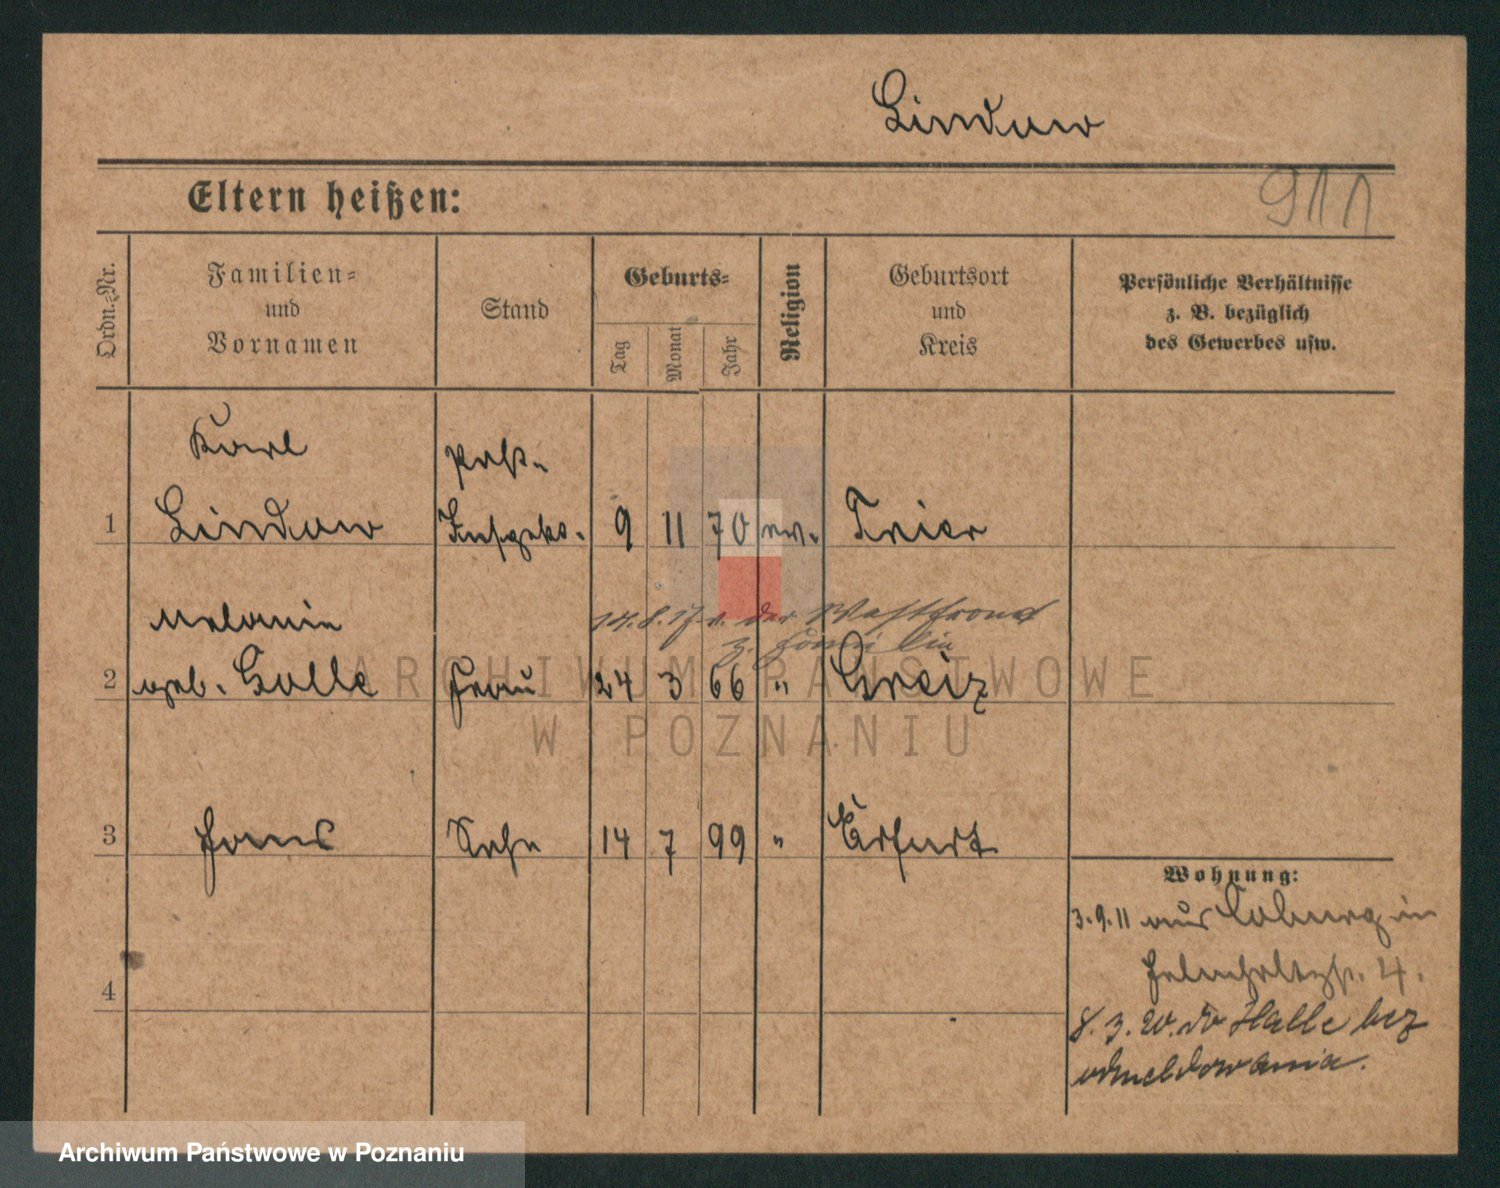 Lindow
Eltern heißen:
911
Ordn.-Nr.
Familien=
und
Vornamen
Stand
Geburts=
Tag
Monat
Jahr
Religion
Geburtsort
und
Kreis
Persönliche Verhältnisse
z. B. bezüglich
des Gewerbes usw.
Karl
Post-
1 Lindow 9 11 70 ev. Trier
14.8.17 der Westfront
z.
Melanie
2 geb. Golle Frau 24 3 66 " Greiz
3 Hans Sohn 14 7 99 " Erfurt
Wohnung:
3.9.11 aus Coburg in
4
4.
8.3.20. do Halle bez
odmeldowania.
ARCHIWUM PAŃSTWOWE
W POZNANIU
Archiwum Państwowe w Poznaniu